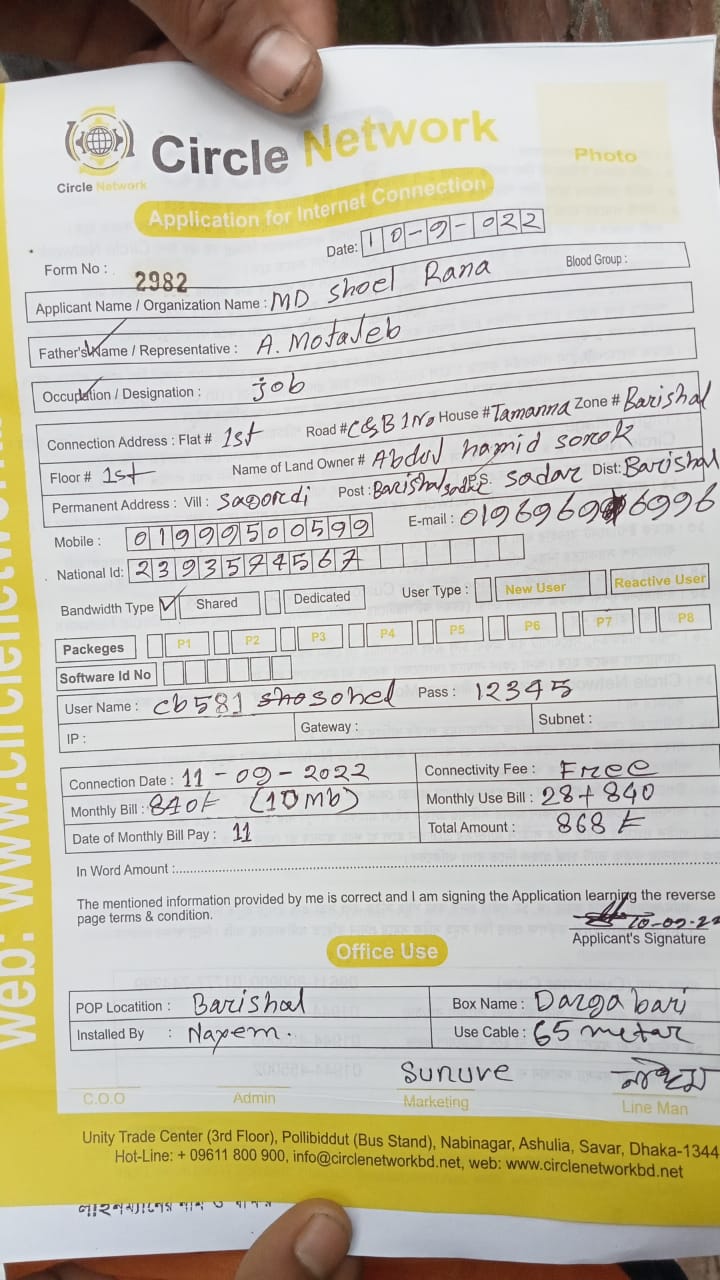 Circle Network
Circle Network
Photo
Application for Internet Connection
Date: 10-9-022
Form No : 2982
Blood Group :
Applicant Name / Organization Name : MD Shoel Rana
Father's Name / Representative : A. Motaleb
Occupation / Designation : job
Connection Address : Flat # 1st Road # C&B 1No House # Tamanna Zone # Barishal
Floor # 1st Name of Land Owner # Abdul hamid sorok
Permanent Address : Vill : sagordi Post : Barishal sadar P.S. sadar Dist: Barishal
Mobile : 01999500599 E-mail : 019696966996
National Id: 2393574567
Bandwidth Type Shared Dedicated User Type : New User Reactive User
Packeges P1 P2 P3 P4 P5 P6 P7 P8
Software Id No
User Name : cb581 shosohel Pass : 12345
IP : Gateway : Subnet :
Connection Date : 11-09-2022 Connectivity Fee : Free
Monthly Bill : 840৳ (10mb) Monthly Use Bill : 28+840
Date of Monthly Bill Pay : 11 Total Amount : 868৳
In Word Amount :
The mentioned information provided by me is correct and I am signing the Application learning the reverse
page terms & condition.
10-09-22
Applicant's Signature
Office Use
POP Locatition : Barishal Box Name : Dargabari
Installed By : Nayem. Use Cable : 65 metar
Sunuve নাঈম
C.O.O Admin Marketing Line Man
Unity Trade Center (3rd Floor), Pollibiddut (Bus Stand), Nabinagar, Ashulia, Savar, Dhaka-1344
Hot-Line: + 09611 800 900, info@circlenetworkbd.net, web: www.circlenetworkbd.net